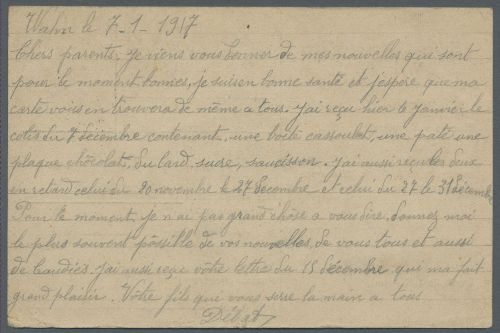 Wahn le 7-1-1917
Chers parents, je viens vous donner de mes nouvelles qui sont
pour le moment bonnes, je suis en bonne santé et j'espère que ma
carte vous en trouvera de même a tous. j'ai reçu hier le janvier le
colis du 7 décembre contenant, une boite cassoulet, une paté une
plaque chocolat, du lard, sucre, saucisson. j'ai aussi reçu les deux
en retard celui du 20 novembre le 27 décembre et celui du 27 le 31 décembre
Pour le moment, je n'ai pas grand chose a vous dire, donnez moi
le plus souvent possible de vos nouvelles, de vous tous et aussi
de Caudiès. j'ai aussi reçu vôtre lettre du 15 décembre qui ma fait
grand plaisir. Vôtre fils qui vous serre la main a tous